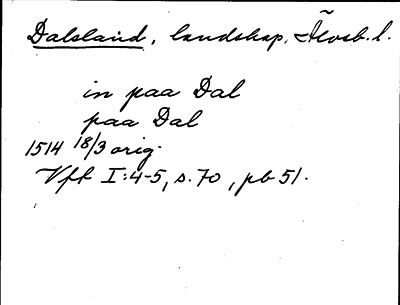 Dalsland, landskap, Älvsb. l.
in paa Dal
paa Dal
1514 18/3 orig.
Vft I:4-5, s. 70, pb 51.